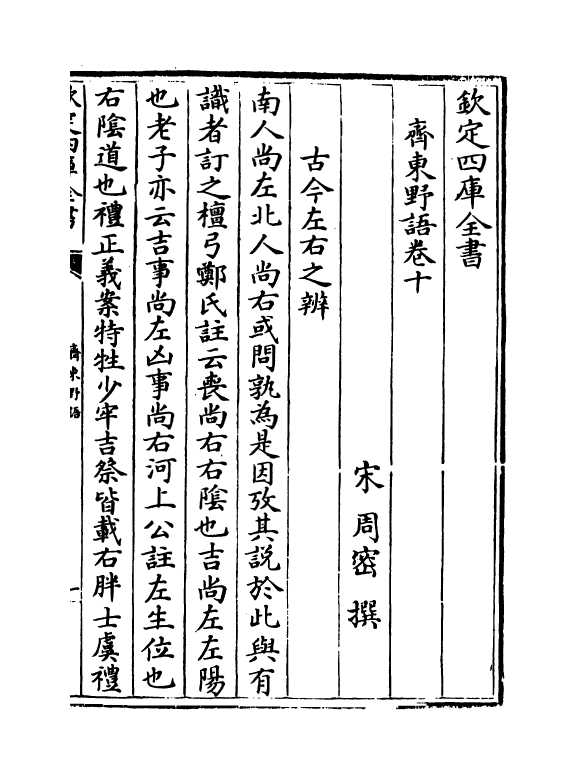 欽定四庫全書
齊東野語卷十
宋 周密 撰
古今左右之辨
南人尚左北人尚右或問孰為是因攷其説於此與有
識者訂之檀弓鄭氏註云喪尚右右陰也吉尚左左陽
也老子亦云吉事尚左凶事尚右河上公註左生位也
右陰道也禮正義案特牲少牢吉祭皆載右胖士虞禮
欽定四庫全書
齊東野語
一